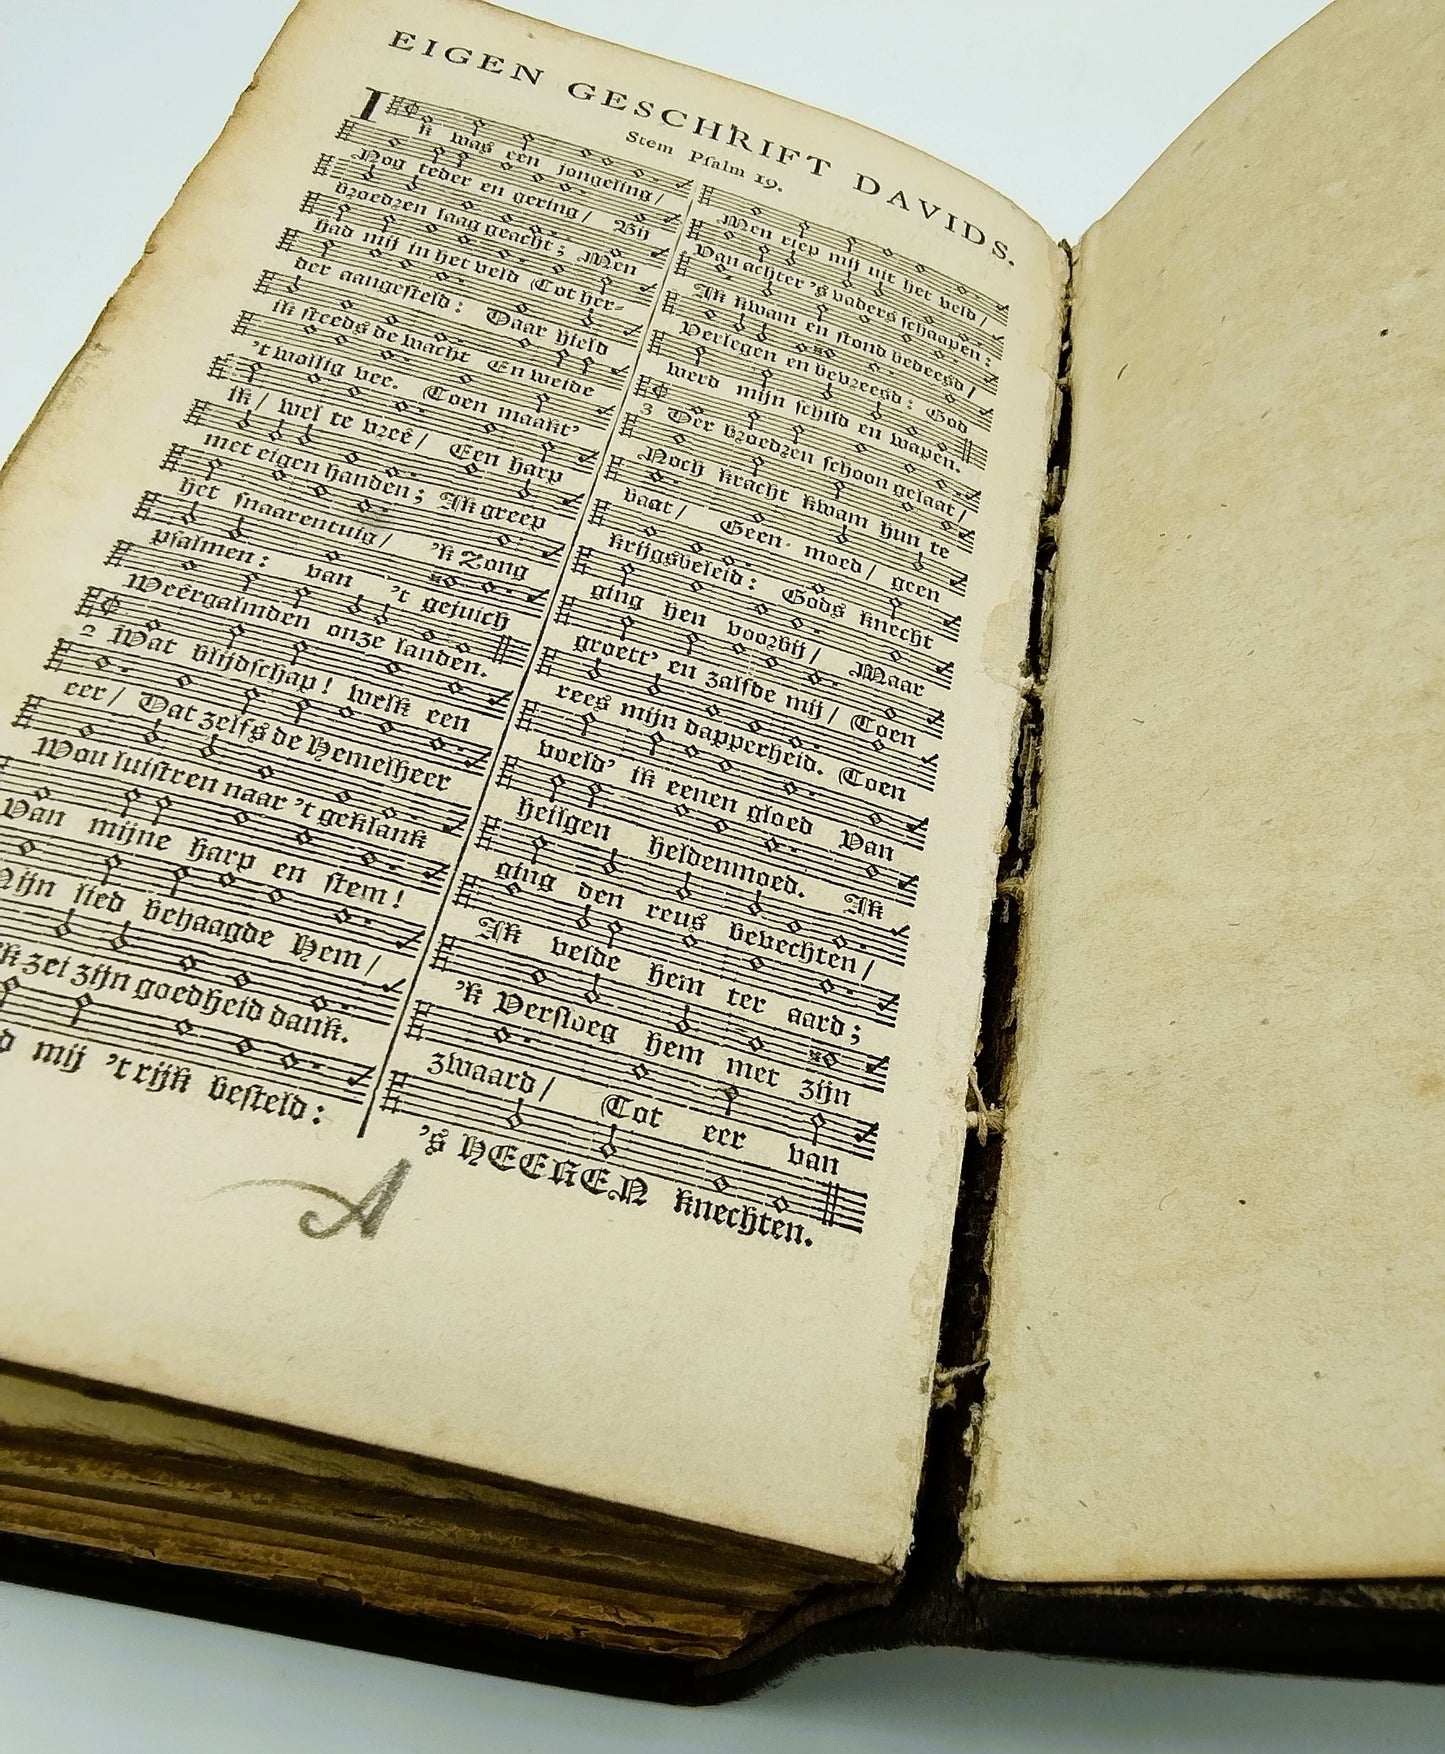 EIGEN GESCHRIFT DAVIDS.
Stem Psalm 19.
Ik was een jongeling/
Nog teder en gering/ Bij
broedren laag geacht; Men
had mij in het veld Tot her-
der aangesteld: Daar hield
ik steeds de wacht En weide
't wollig vee. Toen maakt'
ik/ wel te vreê/ Een harp
met eigen handen; Ik greep
het snaarentuig/ 'k Zong
psalmen: van 't gejuich
Weêrgalmden onze landen.
2 Wat blijdschap! welk een
eer/ Dat zelfs de Hemelheer
Wou luistren naar 't geklank
Van mijne harp en stem!
Mijn lied behaagde Hem/
'k zei zijn goedheid dank.
mij 't rijk besteld:
Men riep mij uit het veld/
Van achter 's vaders schaapen:
Ik kwam en stond bedeesd/
Verlegen en bevreesd: God
werd mijn schild en wapen.
3 Der broedren schoon gelaat/
Noch kracht kwam hun te
baat/ Geen moed/ geen
krijgsbeleid: Gods knecht
ging hen voorbij/ Maar
groett' en zalfde mij/ Toen
rees mijn dapperheid. Toen
voeld' ik eenen gloed Van
heilgen heldenmoed. Ik
ging den reus bevechten/
Ik velde hem ter aard;
'k Versloeg hem met zijn
zwaard/ Tot eer van
's HEEREN knechten.
A